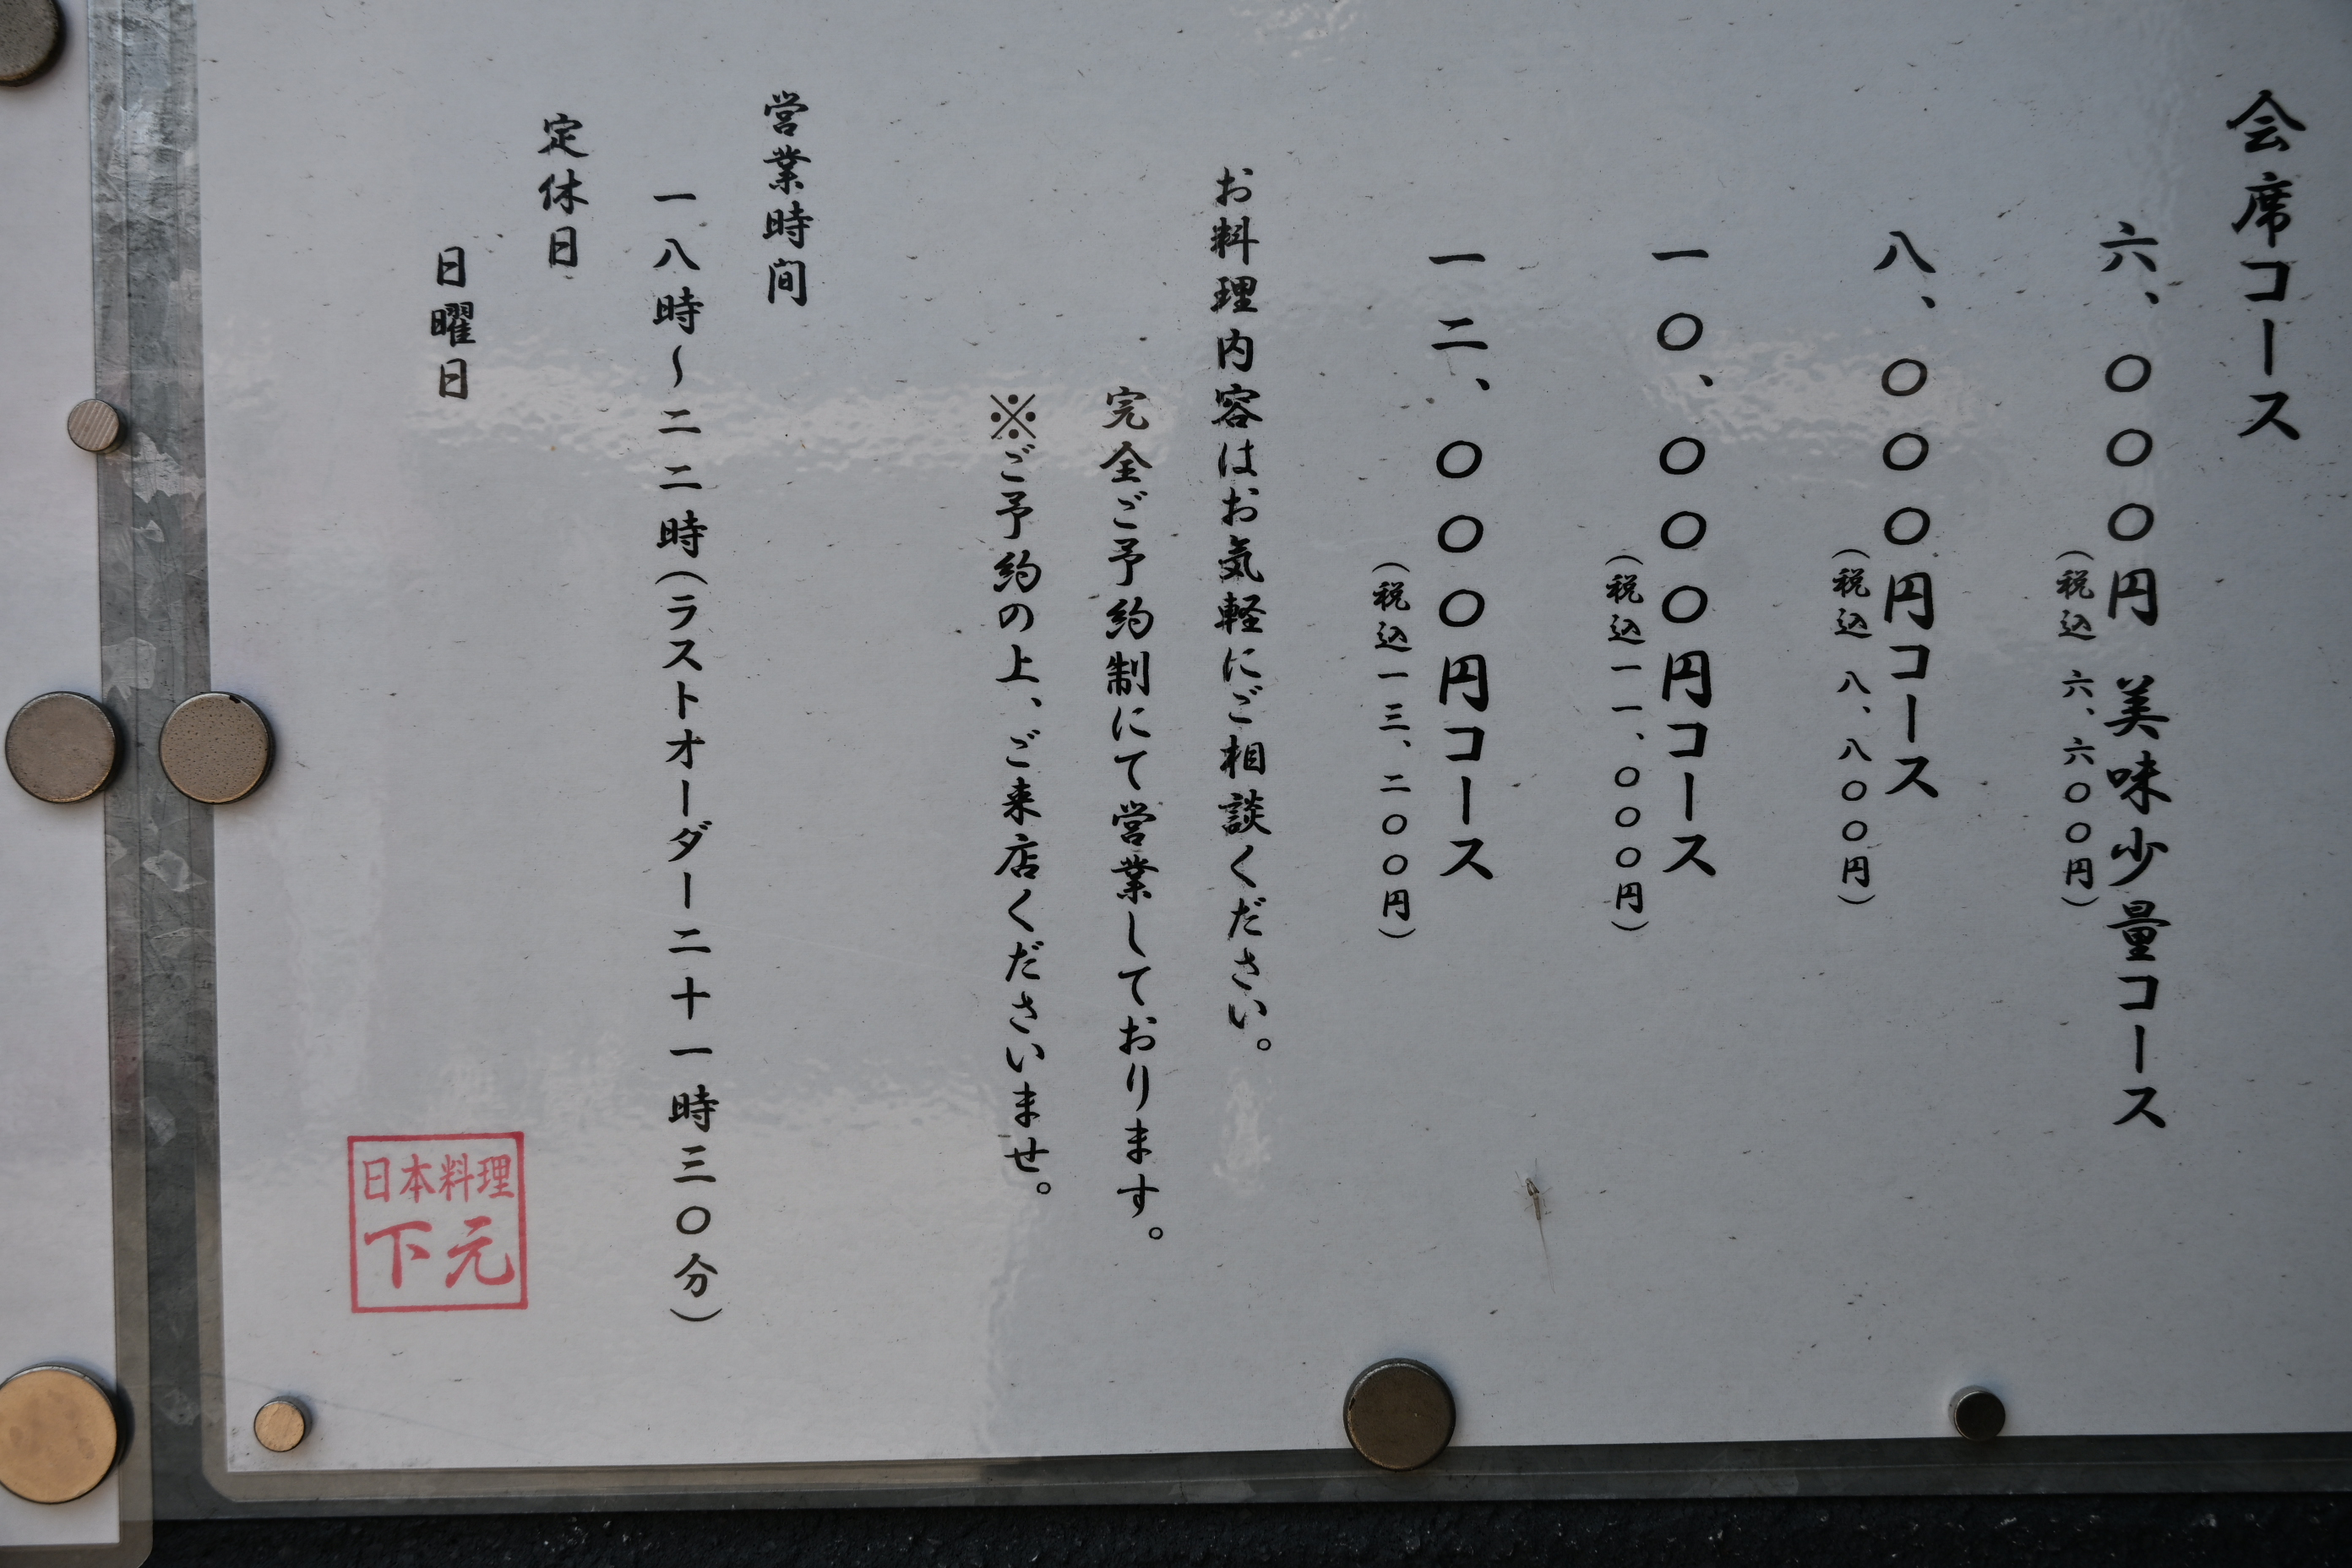 会席コース
六、〇〇〇円 美味少量コース
(税込 六、六〇〇円)
八、〇〇〇円コース
(税込 八、八〇〇円)
一〇、〇〇〇円コース
(税込一一、〇〇〇円)
一二、〇〇〇円コース
(税込一三、二〇〇円)
お料理内容はお気軽にご相談ください。
完全ご予約制にて営業しております。
※ご予約の上、ご来店くださいませ。
営業時間
一八時～二二時(ラストオーダー二十一時三〇分)
定休日
日曜日
日本料理
下元